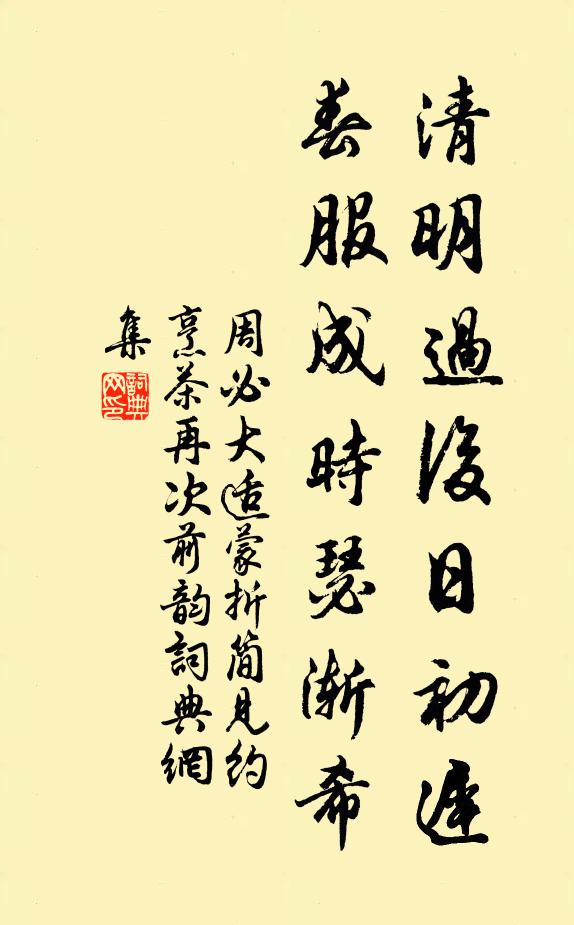 清明過後日初遲
春服成時瑟漸希
周必大適蒙折簡見約
烹茶再次前韵詞典網
集
詞典
网印